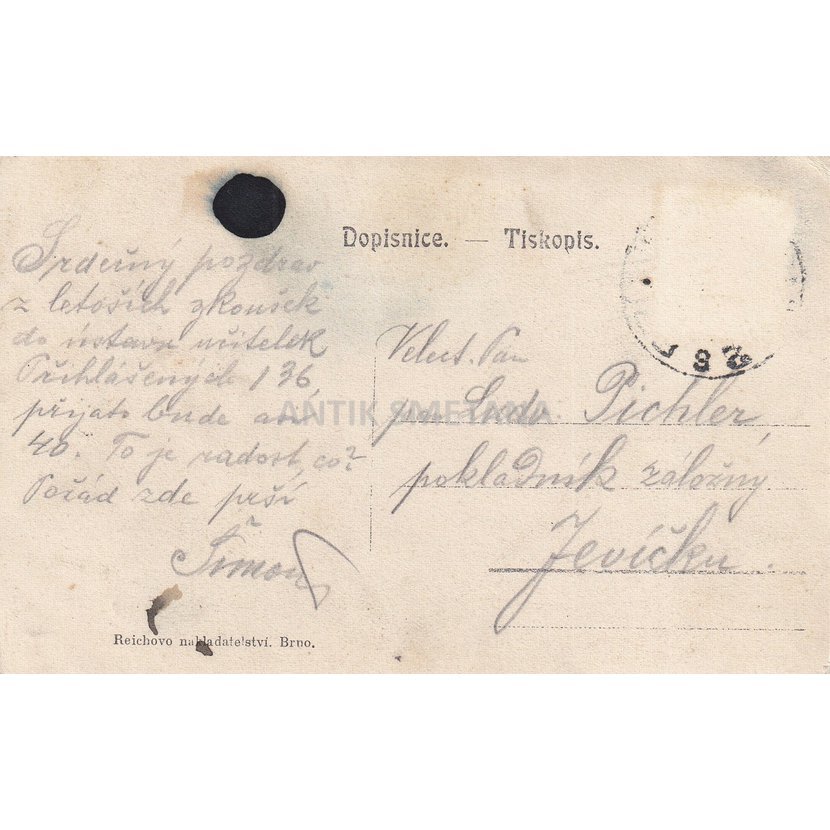 Dopisnice. — Tiskopis.
Srdečný pozdrav
z letoších zkoušek
do ústavu učitelek
Přihlášených 136
přijato bude asi
40. To je radost, co?
Pořád zde prší
Šimon
Velect. Pan
pan Lado Pichler,
pokladník záložny
Jevíčku.
Reichovo nakladatelství. Brno.
ANTIK SMETANA